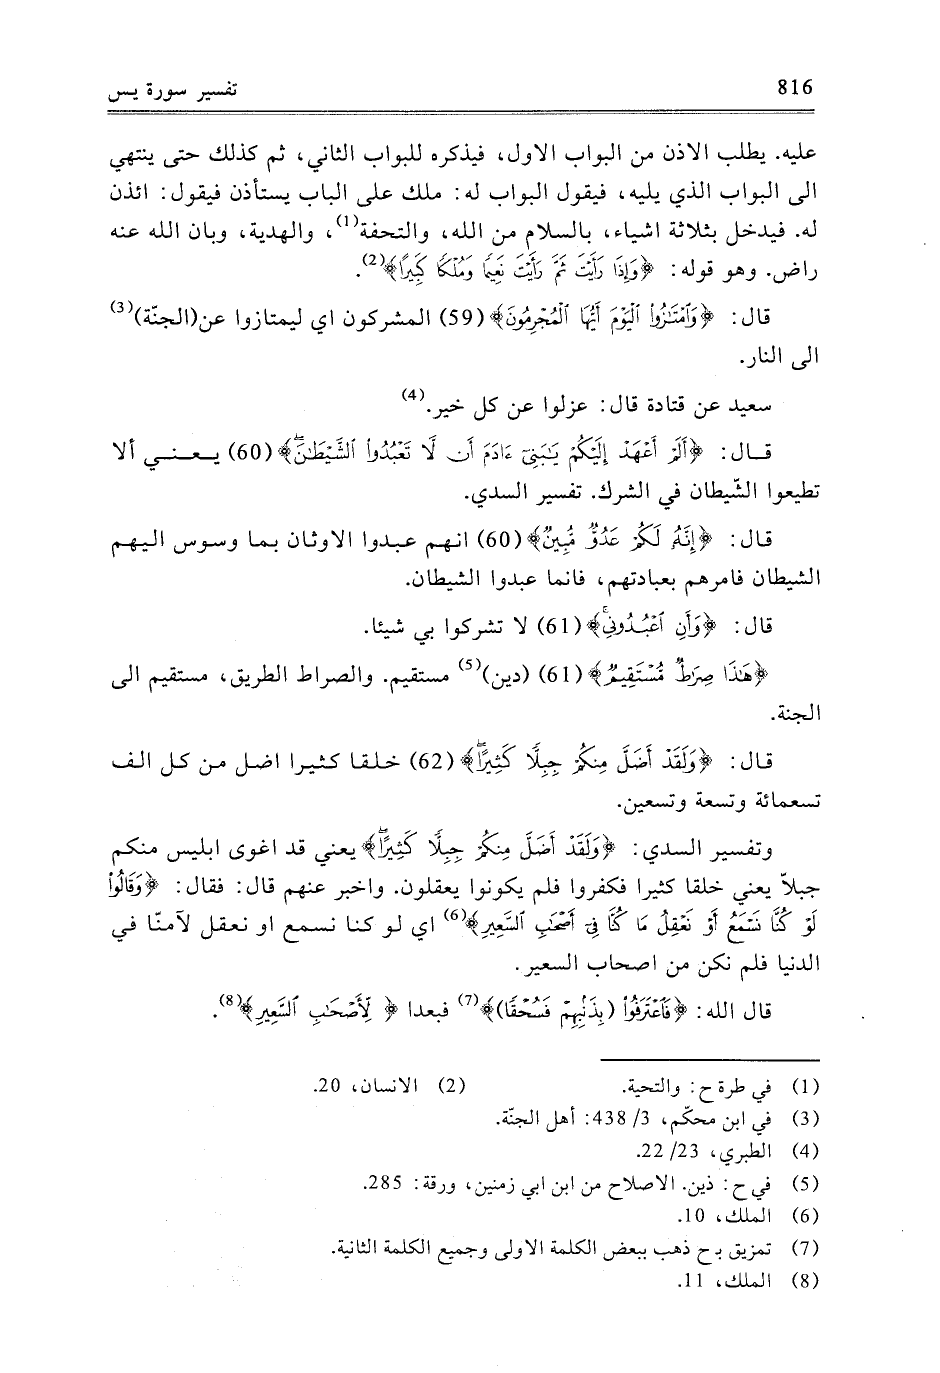 816 تفسير سورة يس
عليه. يطلب الاذن من البواب الاول، فيذكره للبواب الثاني، ثم كذلك حتى ينتهي
الى البواب الذي يليه، فيقول البواب له: ملك على الباب يستأذن فيقول: ائذن
له. فيدخل بثلاثة اشياء، بالسلام من الله، والتحفة(1)، والهدية، وبان الله عنه
راض. وهو قوله: ﴿وَإِذَا رَأَيْتَ ثَمَّ رَأَيْتَ نَعِيمًا وَمُلْكًا كَبِيرًا﴾(2).
قال: ﴿وَٱمْتَـٰزُوا۟ ٱلْيَوْمَ أَيُّهَا ٱلْمُجْرِمُونَ﴾ (59) المشركون اي ليمتازوا عن(الجنّة)(3)
الى النار.
سعيد عن قتادة قال: عزلوا عن كل خير.(4)
قـال: ﴿أَلَمْ أَعْهَدْ إِلَيْكُمْ يَـٰبَنِىٓ ءَادَمَ أَن لَّا تَعْبُدُوا۟ ٱلشَّيْطَـٰنَۖ﴾ (60) يـعـنـي ألا
تطيعوا الشّيطان في الشرك. تفسير السدي.
قال: ﴿إِنَّهُۥ لَكُمْ عَدُوٌّ مُّبِينٌ﴾ (60) انهم عبدوا الاوثان بما وسوس اليهم
الشيطان فامرهم بعبادتهم، فانما عبدوا الشيطان.
قال: ﴿وَأَنِ ٱعْبُدُونِىۚ﴾ (61) لا تشركوا بي شيئا.
﴿هَـٰذَا صِرَٰطٌ مُّسْتَقِيمٌ﴾ (61) (دين)(5) مستقيم. والصراط الطريق، مستقيم الى
الجنة.
قال: ﴿وَلَقَدْ أَضَلَّ مِنكُمْ جِبِلًّا كَثِيرًاۖ﴾ (62) خلقا كثيرا اضل من كل الف
تسعمائة وتسعة وتسعين.
وتفسير السدي: ﴿وَلَقَدْ أَضَلَّ مِنكُمْ جِبِلًّا كَثِيرًاۖ﴾ يعني قد اغوى ابليس منكم
جبلاّ يعني خلقا كثيرا فكفروا فلم يكونوا يعقلون. واخبر عنهم قال: فقال: ﴿وَقَالُوا۟
لَوْ كُنَّا نَسْمَعُ أَوْ نَعْقِلُ مَا كُنَّا فِىٓ أَصْحَـٰبِ ٱلسَّعِيرِ﴾(6) اي لو كنا نسمع او نعقل لآمنّا في
الدنيا فلم نكن من اصحاب السعير.
قال الله: ﴿فَٱعْتَرَفُوا۟ (بِذَنۢبِهِمْ فَسُحْقًا)﴾(7) فبعدا ﴿ لِّأَصْحَـٰبِ ٱلسَّعِيرِ﴾(8).
(1) في طرة ح: والتحية. (2) الانسان، 20.
(3) في ابن محكّم، 3/ 438: أهل الجنّة.
(4) الطبري، 23/ 22.
(5) في ح: ذين. الاصلاح من ابن ابي زمنين، ورقة: 285.
(6) الملك، 10.
(7) تمزيق بـ ح ذهب ببعض الكلمة الاولى وجميع الكلمة الثانية.
(8) الملك، 11.